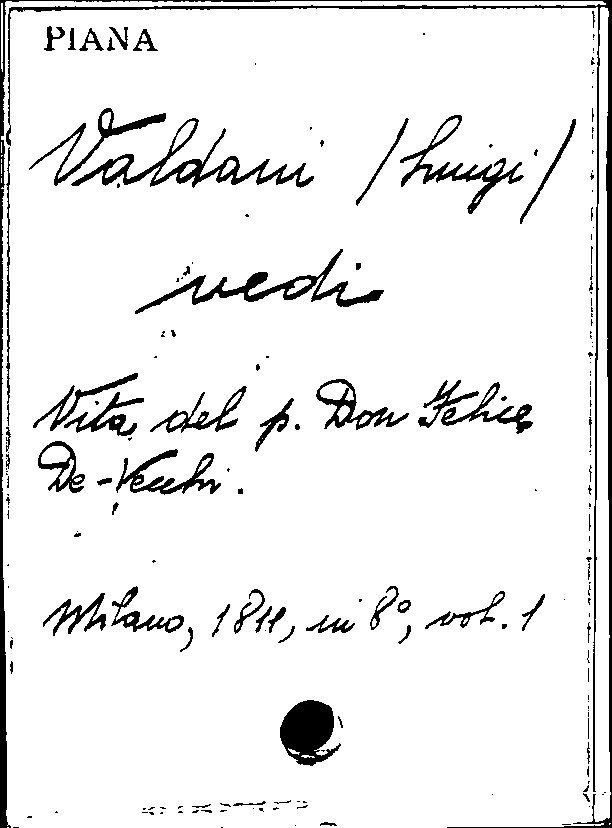 PIANA
Valdani /Luigi/
vedi
Vita del p. Don Felice
De-Vecchi.
Milano, 1811, in 8°, vol. 1